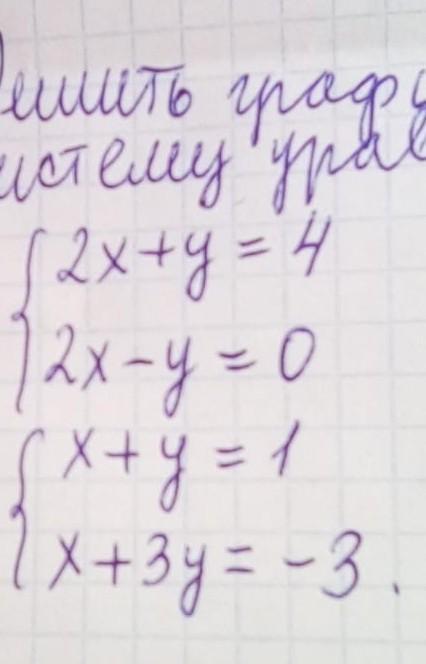 Решить граф
систему урав
{ 2x + y = 4
2x - y = 0
{ x + y = 1
x + 3y = -3.